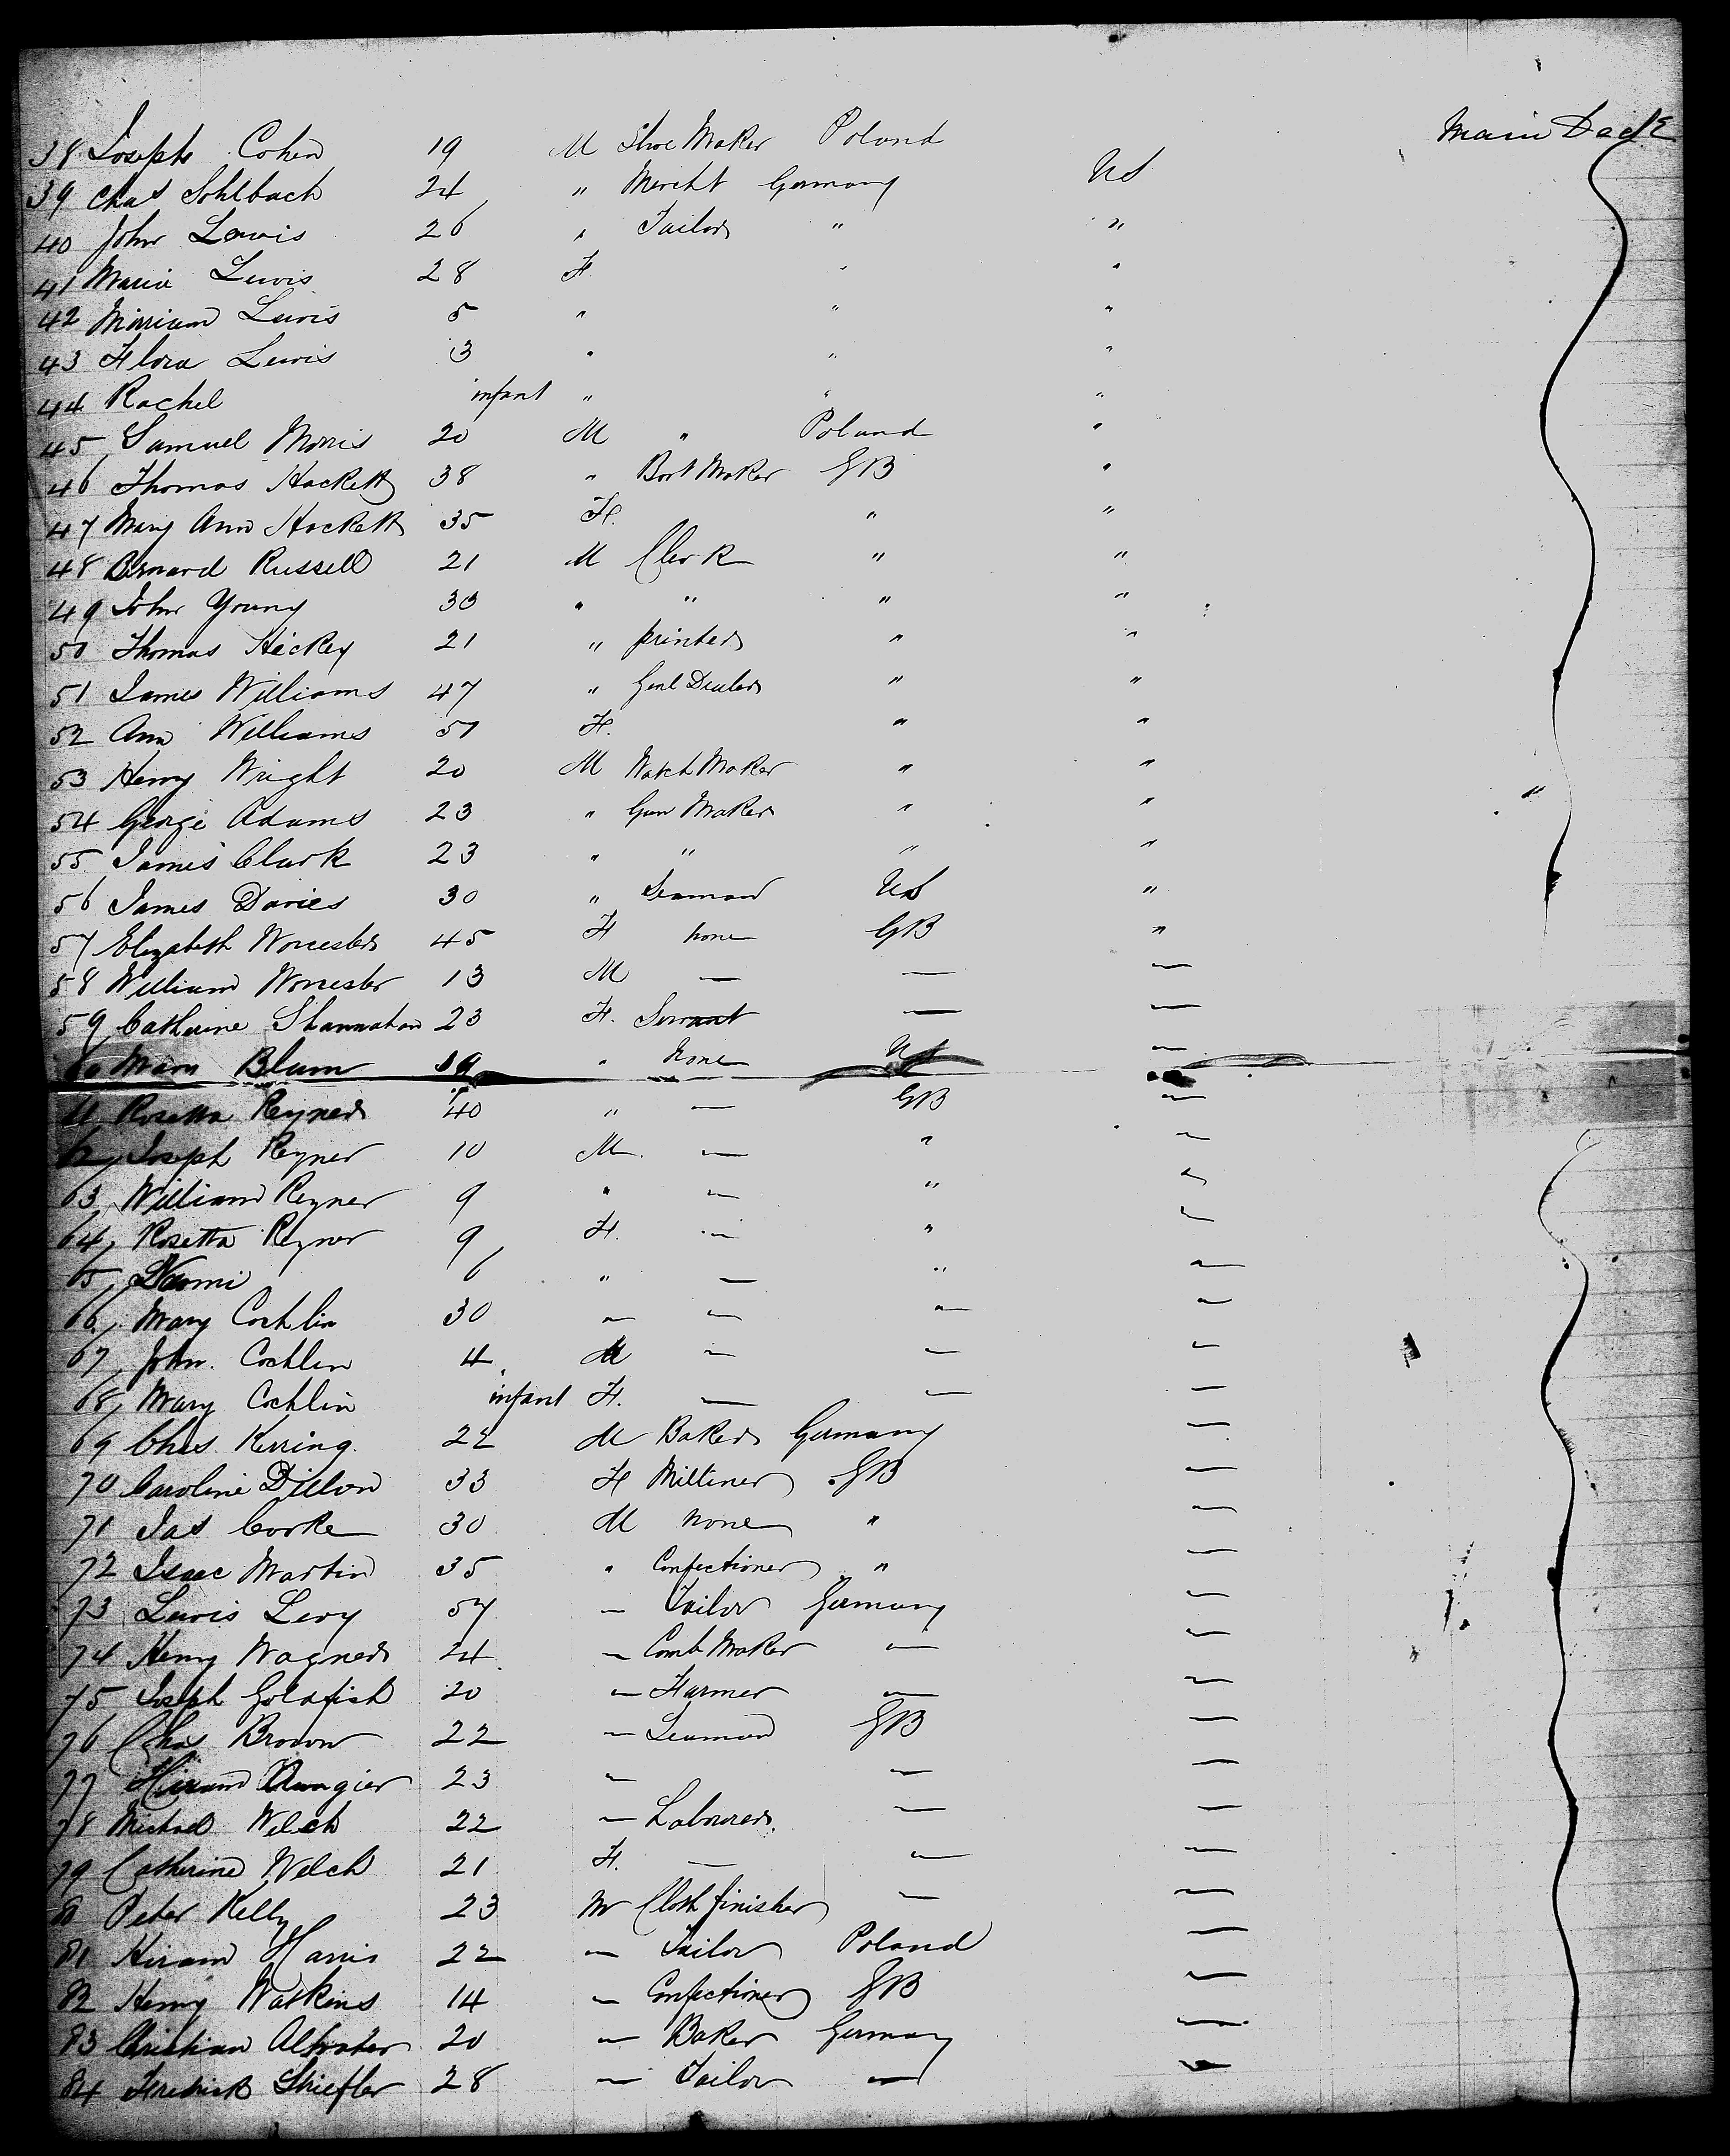 Main Deck
38 Joseph Cohen 19 M Shoe Maker Poland
39 Chas Sohlbach 24 " Mercht Germany US
40 John Lewis 26 " Tailor " "
41 Maria Lewis 28 F. " "
42 Mirriam Lewis 5 " " "
43 Flora Lewis 3 " " "
44 Rachel infant " " "
45 Samuel Morris 20 M " Poland "
46 Thomas Hackett 38 " Boot Maker GB "
47 Mary Ann Hackett 35 F. " "
48 Bernard Russell 21 M Clerk " "
49 John Young 30 " " " "
50 Thomas Hickey 21 " printer " "
51 James Williams 47 " Genl Dealer " "
52 Ann Williams 51 F. " "
53 Henry Wright 20 M Watch Maker " "
54 George Adams 23 " Gun Maker " " "
55 James Clark 23 " " " "
56 James Davies 30 " Seaman US "
57 Elizabeth Worcester 45 F none GB "
58 William Worcester 13 M — — —
59 Catherine Shannahan 23 F. Servant — —
60 Mary Blum 19 " none US —
61 Rosetta Reyner 40 " — GB —
62 Joseph Reyner 10 M. — " —
63 William Reyner 9 " — " —
64 Rosetta Reyner 9 F. — " —
65 Naomi 6 " — " —
66 Mary Cochlin 30 — — — —
67 John Cochlin 4 M — — —
68 Mary Cochlin infant F. — — —
69 Chas. Kerring 22 M Baker Germany —
70 Caroline Dillon 33 F Milliner GB —
71 Jas Cooke 30 M none " —
72 Isaac Martin 35 " Confectioner " —
73 Lewis Levy 57 — Tailor Germany —
74 Henry Wagner 24 — Comb Maker — —
75 Joseph Goldfish 20 — Farmer — —
76 Chas Brown 22 — Seaman GB —
77 Hiram 23 — — —
78 Michael Welch 22 — Labourer — —
79 Catherine Welch 21 F. — — —
80 Peter Kelly 23 M Cloth finisher — —
81 Hiram Harris 22 — Tailor Poland —
82 Henry Watkins 14 — Confectioner GB —
83 Christian 20 — Baker Germany —
84 Fredrick 28 — Tailor — —